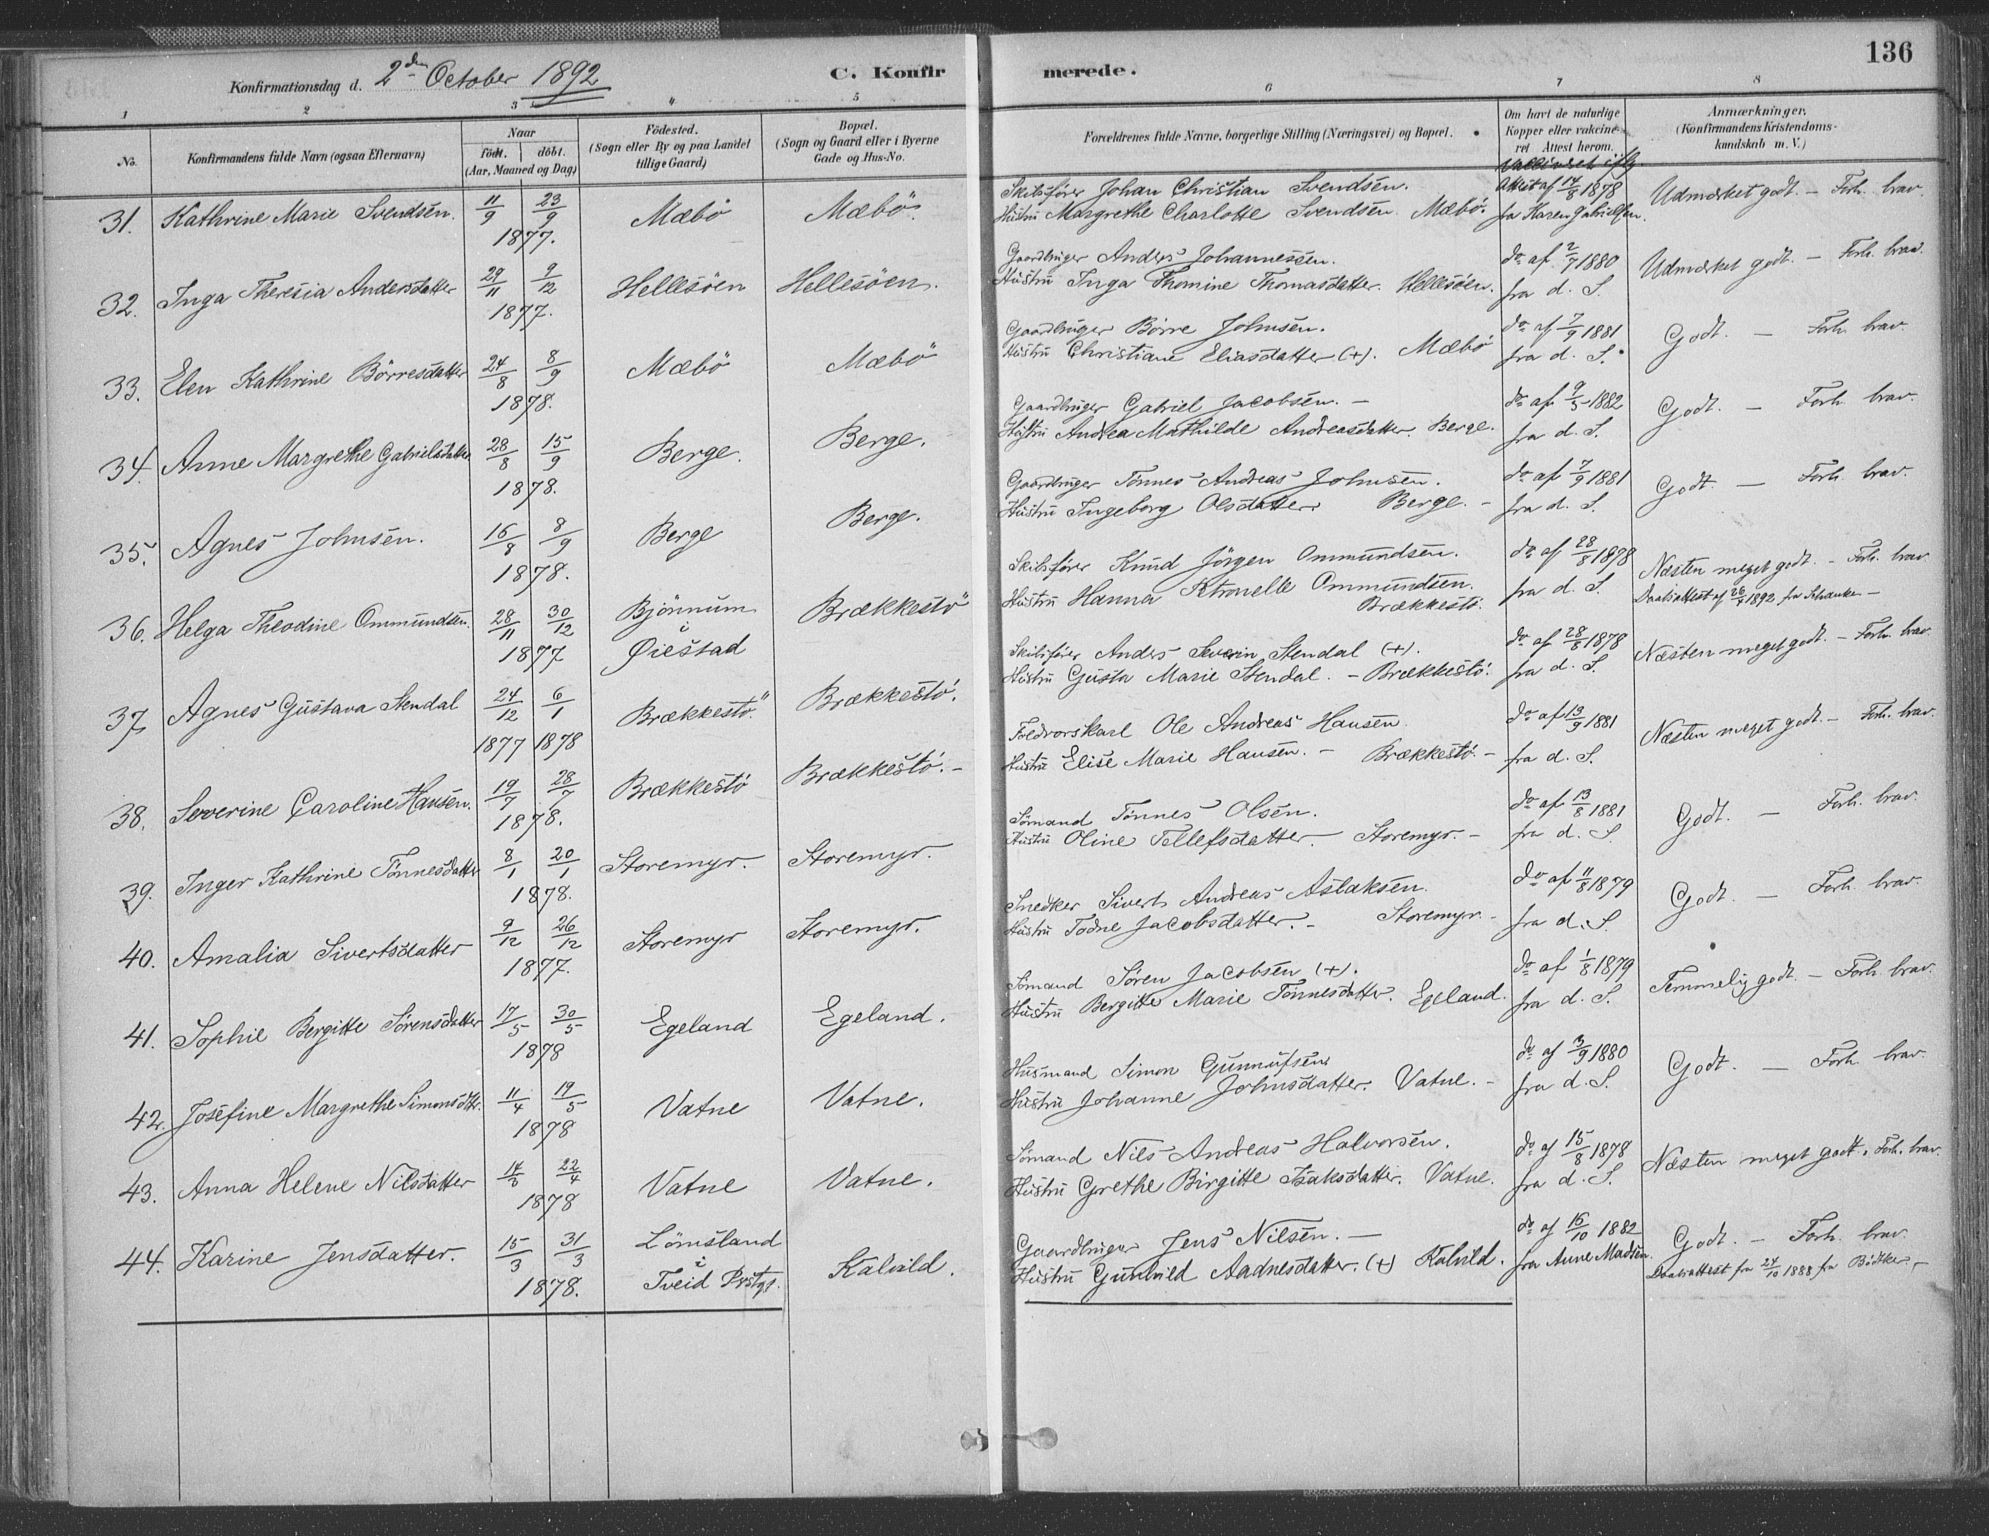 136
Konfirmationsdag d. 2den October 1892
C. Konfirmerede.
1 2 3 4 5 6 7 8
No.
Konfirmandens fulde Navn (ogsaa Efternavn)
Naar
født. døbt.
(Aar, Maaned og Dag)
Fødested.
(Sogn eller By og paa Landet
tillige Gaard)
Bopæl.
(Sogn og Gaard eller i Byerne
Gade og Hus-No.
Forældrenes fulde Navne, borgerlige Stilling (Næringsvei) og Bopæl.
Om havt de naturlige
Kopper eller vakcine-
ret Attest herom.
Anmærkninger.
(Konfirmandens Kristendoms-
kundskab m. V.)
31. Kathrine Marie Svendsen. 11/9 23/9 1877. Mæbö Mæbö.
Skibsfører Johan Christian Svendsen.
Hustru Margrethe Charlotte Svendsen. Mæbö.
Vaccineret iflg.
Attest af 14/8 1878
fra Karen Gabrielsen.
Udmærket godt. – Forh. brav.
32. Inga Theresia Andersdatter 29/11 9/12 1877. Hellesöen Hellesöen.
Gaardbruger Anders Johannessen.
Hustru Inga Thomine Thomasdatter. Hellesöen.
do af 2/7 1880
fra d. S.
Udmærket godt. – Forh. brav.
33. Elen Kathrine Börresdatter 24/8 8/9 1878. Mæbö Mæbö
Gaardbruger Börre Johnsen.
Hustru Christiane Eliasdatter (+). Mæbö
do af 7/9 1881
fra d. S.
Godt. – Forh. brav.
34. Anne Margrethe Gabrielsdatter 28/8 15/9 1878. Berge. Berge.
Gaardbruger Gabriel Jacobsen. –
Hustru Andrea Mathilde Andreasdatter. Berge.
do af 9/5 1882
fra d. S.
Godt. – Forh. brav.
35. Agnes Johnsen. 16/8 8/9 1878. Berge Berge.
Gaardbruger Tönnes Andreas Johnsen.
Hustru Ingeborg Olsdatter Berge. –
do af 7/9 1881
fra d. S.
Godt – Forh. brav.
36. Helga Theodine Ommundsen. 28/11 30/12 1877 Bjönnum i Øiestad Brækkestö
Skibsfører Knud Jörgen Ommundsen.
Hustru Hanna Petronelle Ommundsen.
Brækkestö.
do af 28/8 1878
fra d. S.
Næsten meget godt. – Forh. brav
Daabsattest af 26/4 1892 fra Schanke –
37. Agnes Gustava Stendal 24/12 1877 6/1 1878 Brækkestö. Brækkestö.
Skibsfører Anders Severin Stendal (+).
Hustru Gusta Marie Stendal. – Brækkestö.
do af 28/8 1878
fra d. S.
Næsten meget godt. – Forh. brav.
38. Severine Caroline Hansen. 19/7 28/7 1878. Brækkestö Brækkestö. –
Ole Andreas Hansen.
Hustru Elise Marie Hansen. – Brækkestö. –
do af 13/9 1881
fra d. S.
Næsten meget godt. – Forh. brav.
39. Inger Kathrine Tönnesdatter 8/1 20/1 1878. Storemyr. Storemyr.
Sömand Tönnes Olsen.
Hustru Oline Tellefsdatter. Storemyr. –
do af 13/8 1881
fra d. S
Godt. – Forh. brav.
40. Amalia Sivertsdatter 9/12 26/12 1877. Storemyr Storemyr.
Snedker Sivert Andreas Aslaksen.
Hustru Todne Jacobsdatter. – Storemyr. –
do af 11/8 1879
fra d. S.
Godt. – Forh. brav.
41. Sophie Bergitte Sörensdatter 17/5 30/5 1878 Egeland Egeland.
Sömand Sören Jacobsen (+).
Hustru Bergitte Marie Tönnesdatter. Egeland.
do af 1/8 1879
fra d. S.
Temmelig godt. – Forh. brav.
42. Josefine Margrethe Simonsdtr. 11/4 19/5 1878 Vatne Vatne.
Husmand Simon Gunnufsen
Hustru Johanne Johnsdatter. Vatne. –
do af 13/9 1880
fra d. S.
Godt. – Forh. brav.
43. Anna Helene Nilsdatter 22/4 1878 Vatne Vatne.
Sömand Nils Andreas Halvorsen.
Hustru Grethe Birgitte Isaksdatter. Vatne.
do af 15/8 1878
fra d. S.
Næsten meget godt. Forh. brav.
44. Karine Jensdatter. 15/3 31/3 1878. Lömsland i Tveid Prstgj. Kalvild.
Gaardbruger Jens Nilsen. –
Hustru Gunhild Aadnesdatter. (+) Kalvild.
do af 16/10 1882
fra Anne Madsen.
Godt. – Forh. brav.
Daabsattest fra 24/10 1888 fra Bödtker. –